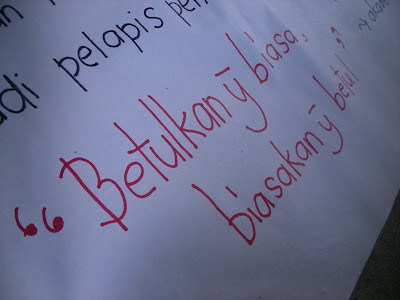 adi pelapis
“ Betulkan ȳ biasa,
biasakan ȳ betul ”